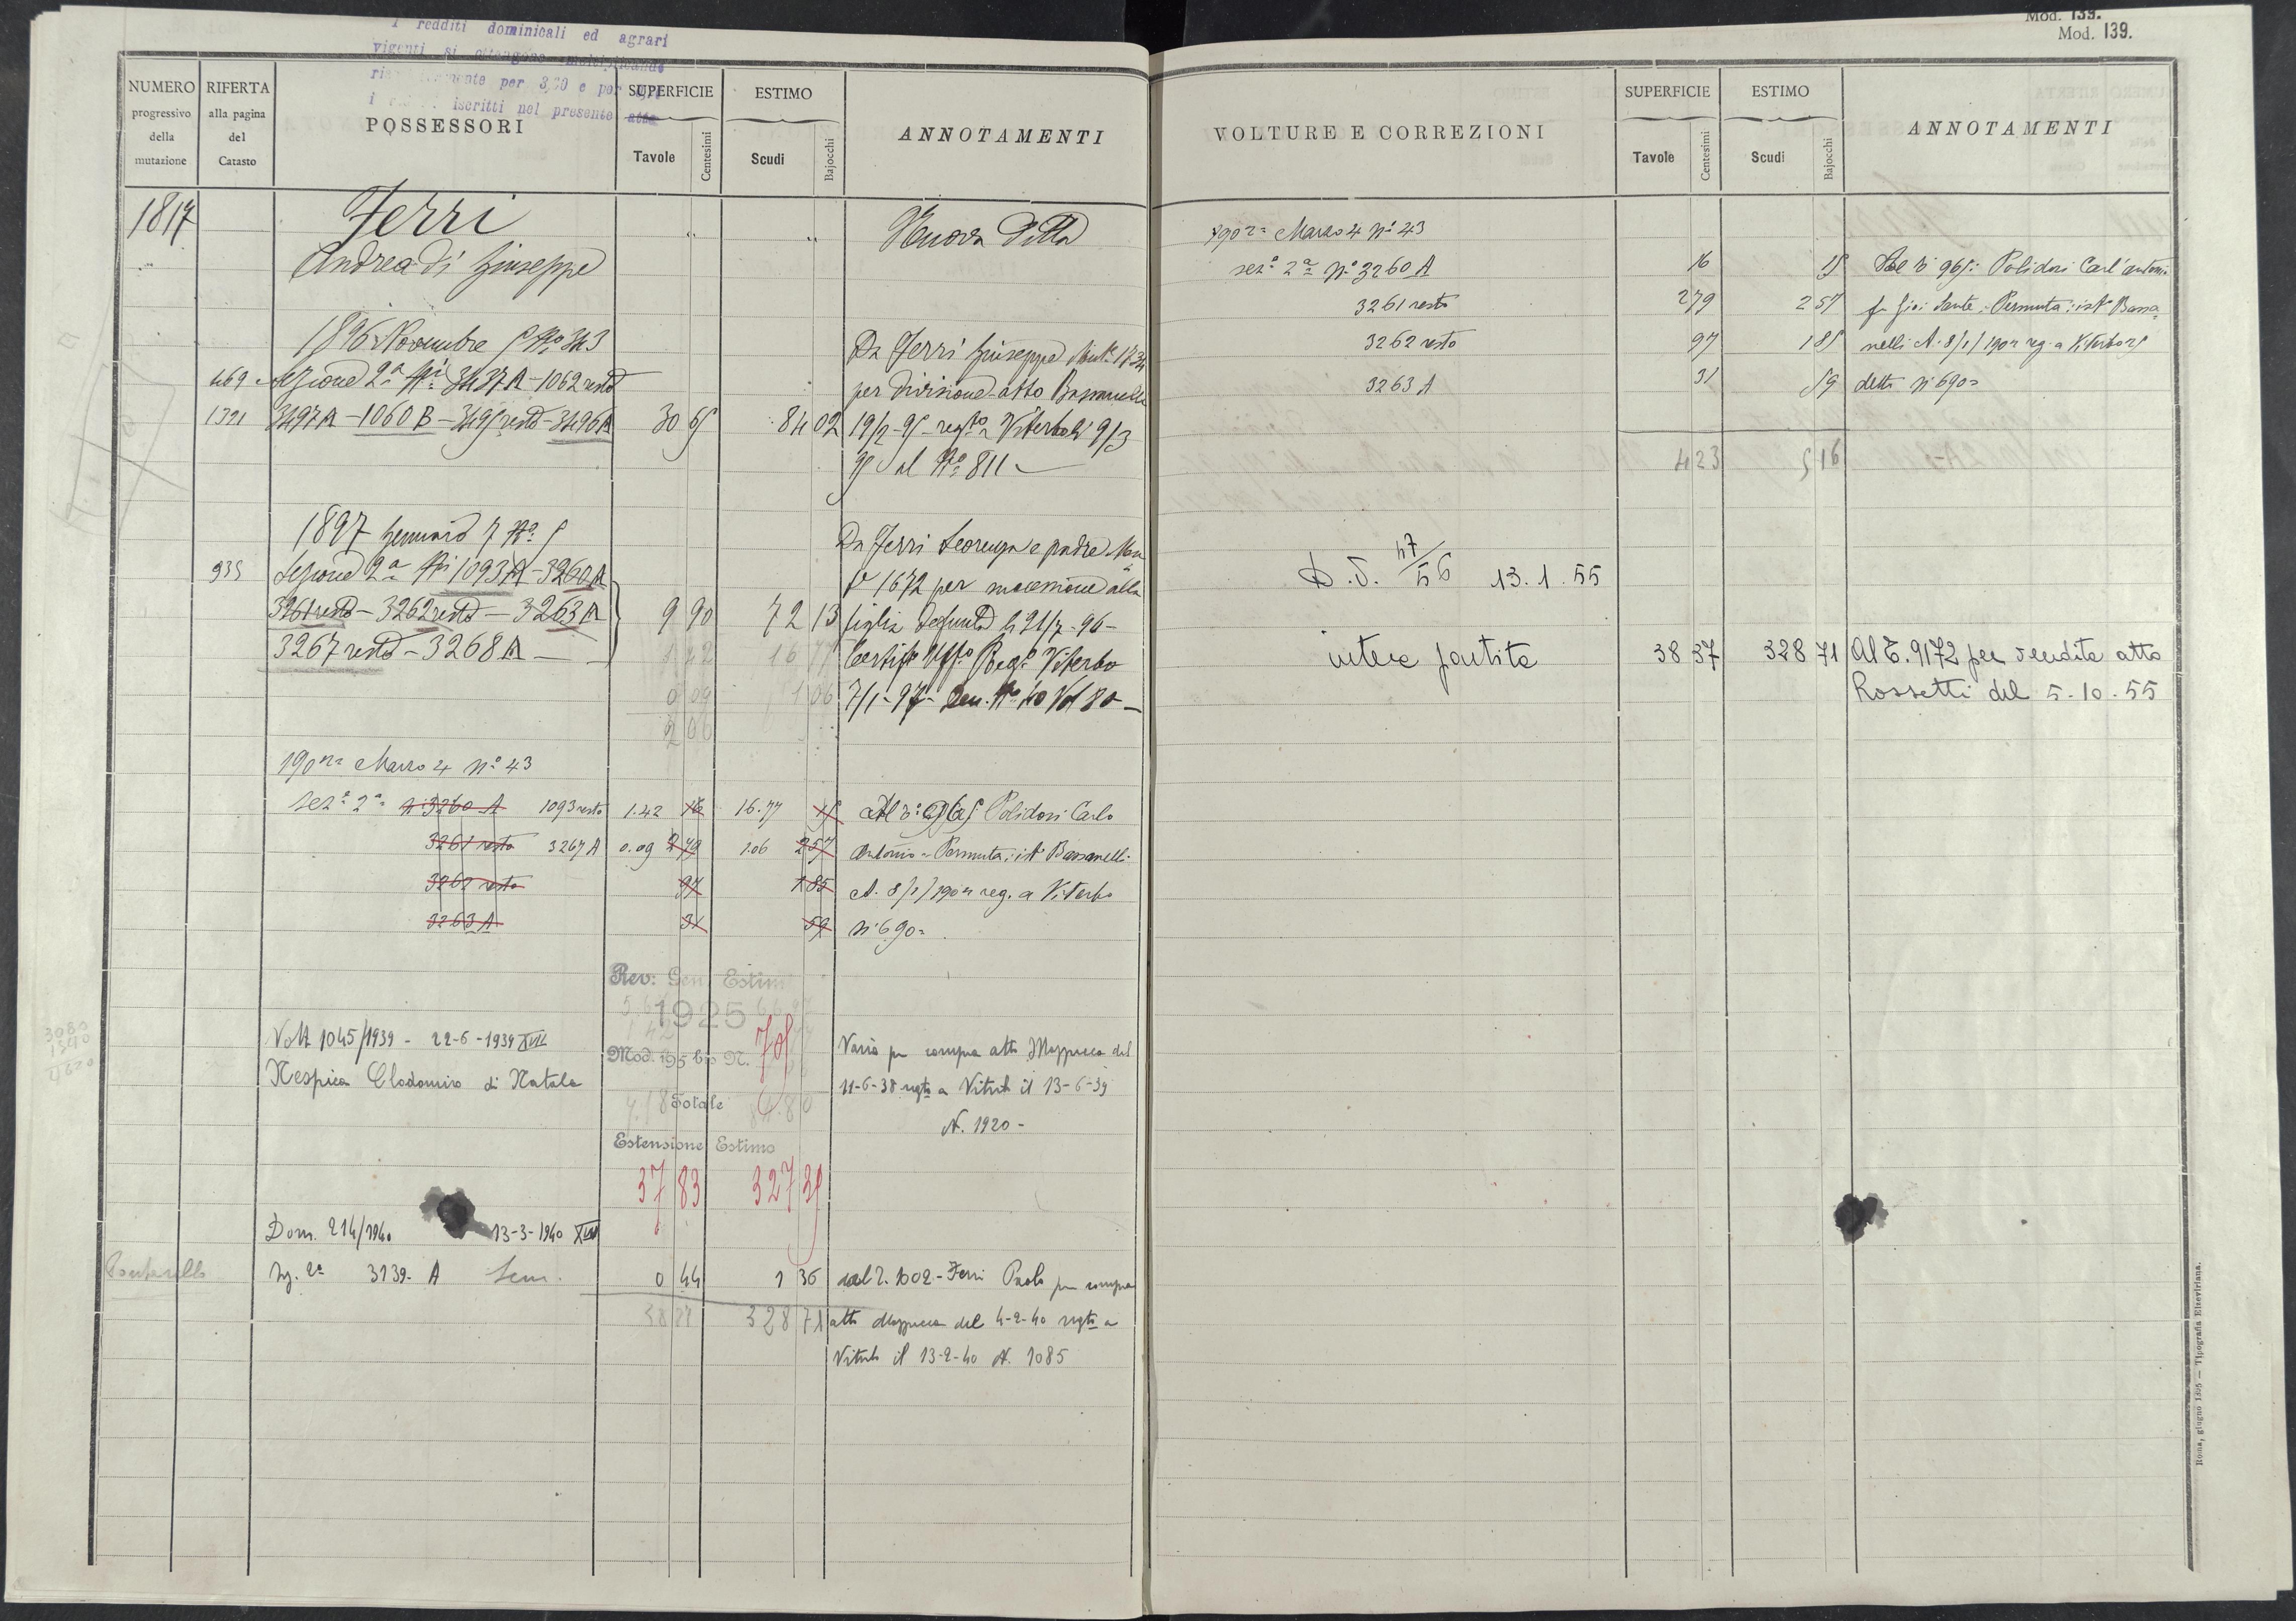 I redditi dominicali ed agrari
vigenti si ottengono moltiplicando
per 3,30 e per
i iscritti nel presente atto
Mod. 139.
Mod. 139.
NUMERO progressivo della mutazione
RIFERTA alla pagina del Catasto
POSSESSORI
SUPERFICIE
Tavole Centesimi
ESTIMO
Scudi Bajocchi
ANNOTAMENTI
1817 Ferri " " Nuova Ditta
Andrea di Giuseppe
1896 Novembre 5 No 343 Da Ferri Giuseppe Mut. 1734
469 Sezione 2a Ni 3437 A - 1062 resto per divisione atto Bassanelli
1321 3497 A - 1060 B - 3495 resto - 3496 A 30 65 84 02 19/2-95 regto a Viterbo li 9/3
95 al No 811
1897 Gennaio 7 No 5 Da Ferri Leorenza e padre
935 Sezione 2a Ni 1093 A - 3260 A 1672 per successione alla
3261 resto - 3262 resto - 3263 A 9 90 72 13 figlia defunta li 21/7-96-
3267 resto - 3268 A 1 42 16 77 Certifo Uffo Rego Viterbo
0 09 1 06 7/1-97- Den. No 40 Vol 80 -
2 06
Marzo 4 No 43
Seze 2a N 3260 A 1093 resto 1.42 16 16.77 15 Al Polidori Carlo
3261 resto 3267 A 0.09 279 1.06 257 Antonio - Permuta: ist Bassanelli
3262 resto 97 185 A. 8/1/ reg. a Viterbo
3263 A 31 59 N. 690
Rev: Gen Estimi
1925
Mod. 195 bis N. 705
Totale
Estensione Estimo
37 83 327 35
3080
1540
Volt 1045/1939 - 22-6-1939 XVII Varia per compra atto Mazzucca del
Nespica Clodomiro di Natale 11-6-38 regto a Viterbo il 13-6-39
N. 1920 -
Dom. 214/1940 13-3-1940 XVIII
Sez. 2a 3139. A Sem. 0 44 1 36 dal 1002 - Ferri Paolo per compra
328 71 atto Mazzucca del 4-2-40 regto a
Viterbo il 13-2-40 N. 1085
VOLTURE E CORREZIONI
SUPERFICIE
Tavole Centesimi
ESTIMO
Scudi Bajocchi
ANNOTAMENTI
Marzo 4 No 43
seze 2a No 3260 A 16 15 Al Polidori Carl'antonio
3261 resto 279 257 Permuta: ist Bassa
3262 resto 97 185 nelli A. 8/1/ reg. a Viterbo
3263 A 31 59 detto N. 690
4 23 5 16
D.T. 47/56 13.1.55
intera partita 38 37 328 71 Al T. 9172 per vendita atto
Rossetti del 5-10-55
Roma, giugno 1895 — Tipografia Elzeviriana.